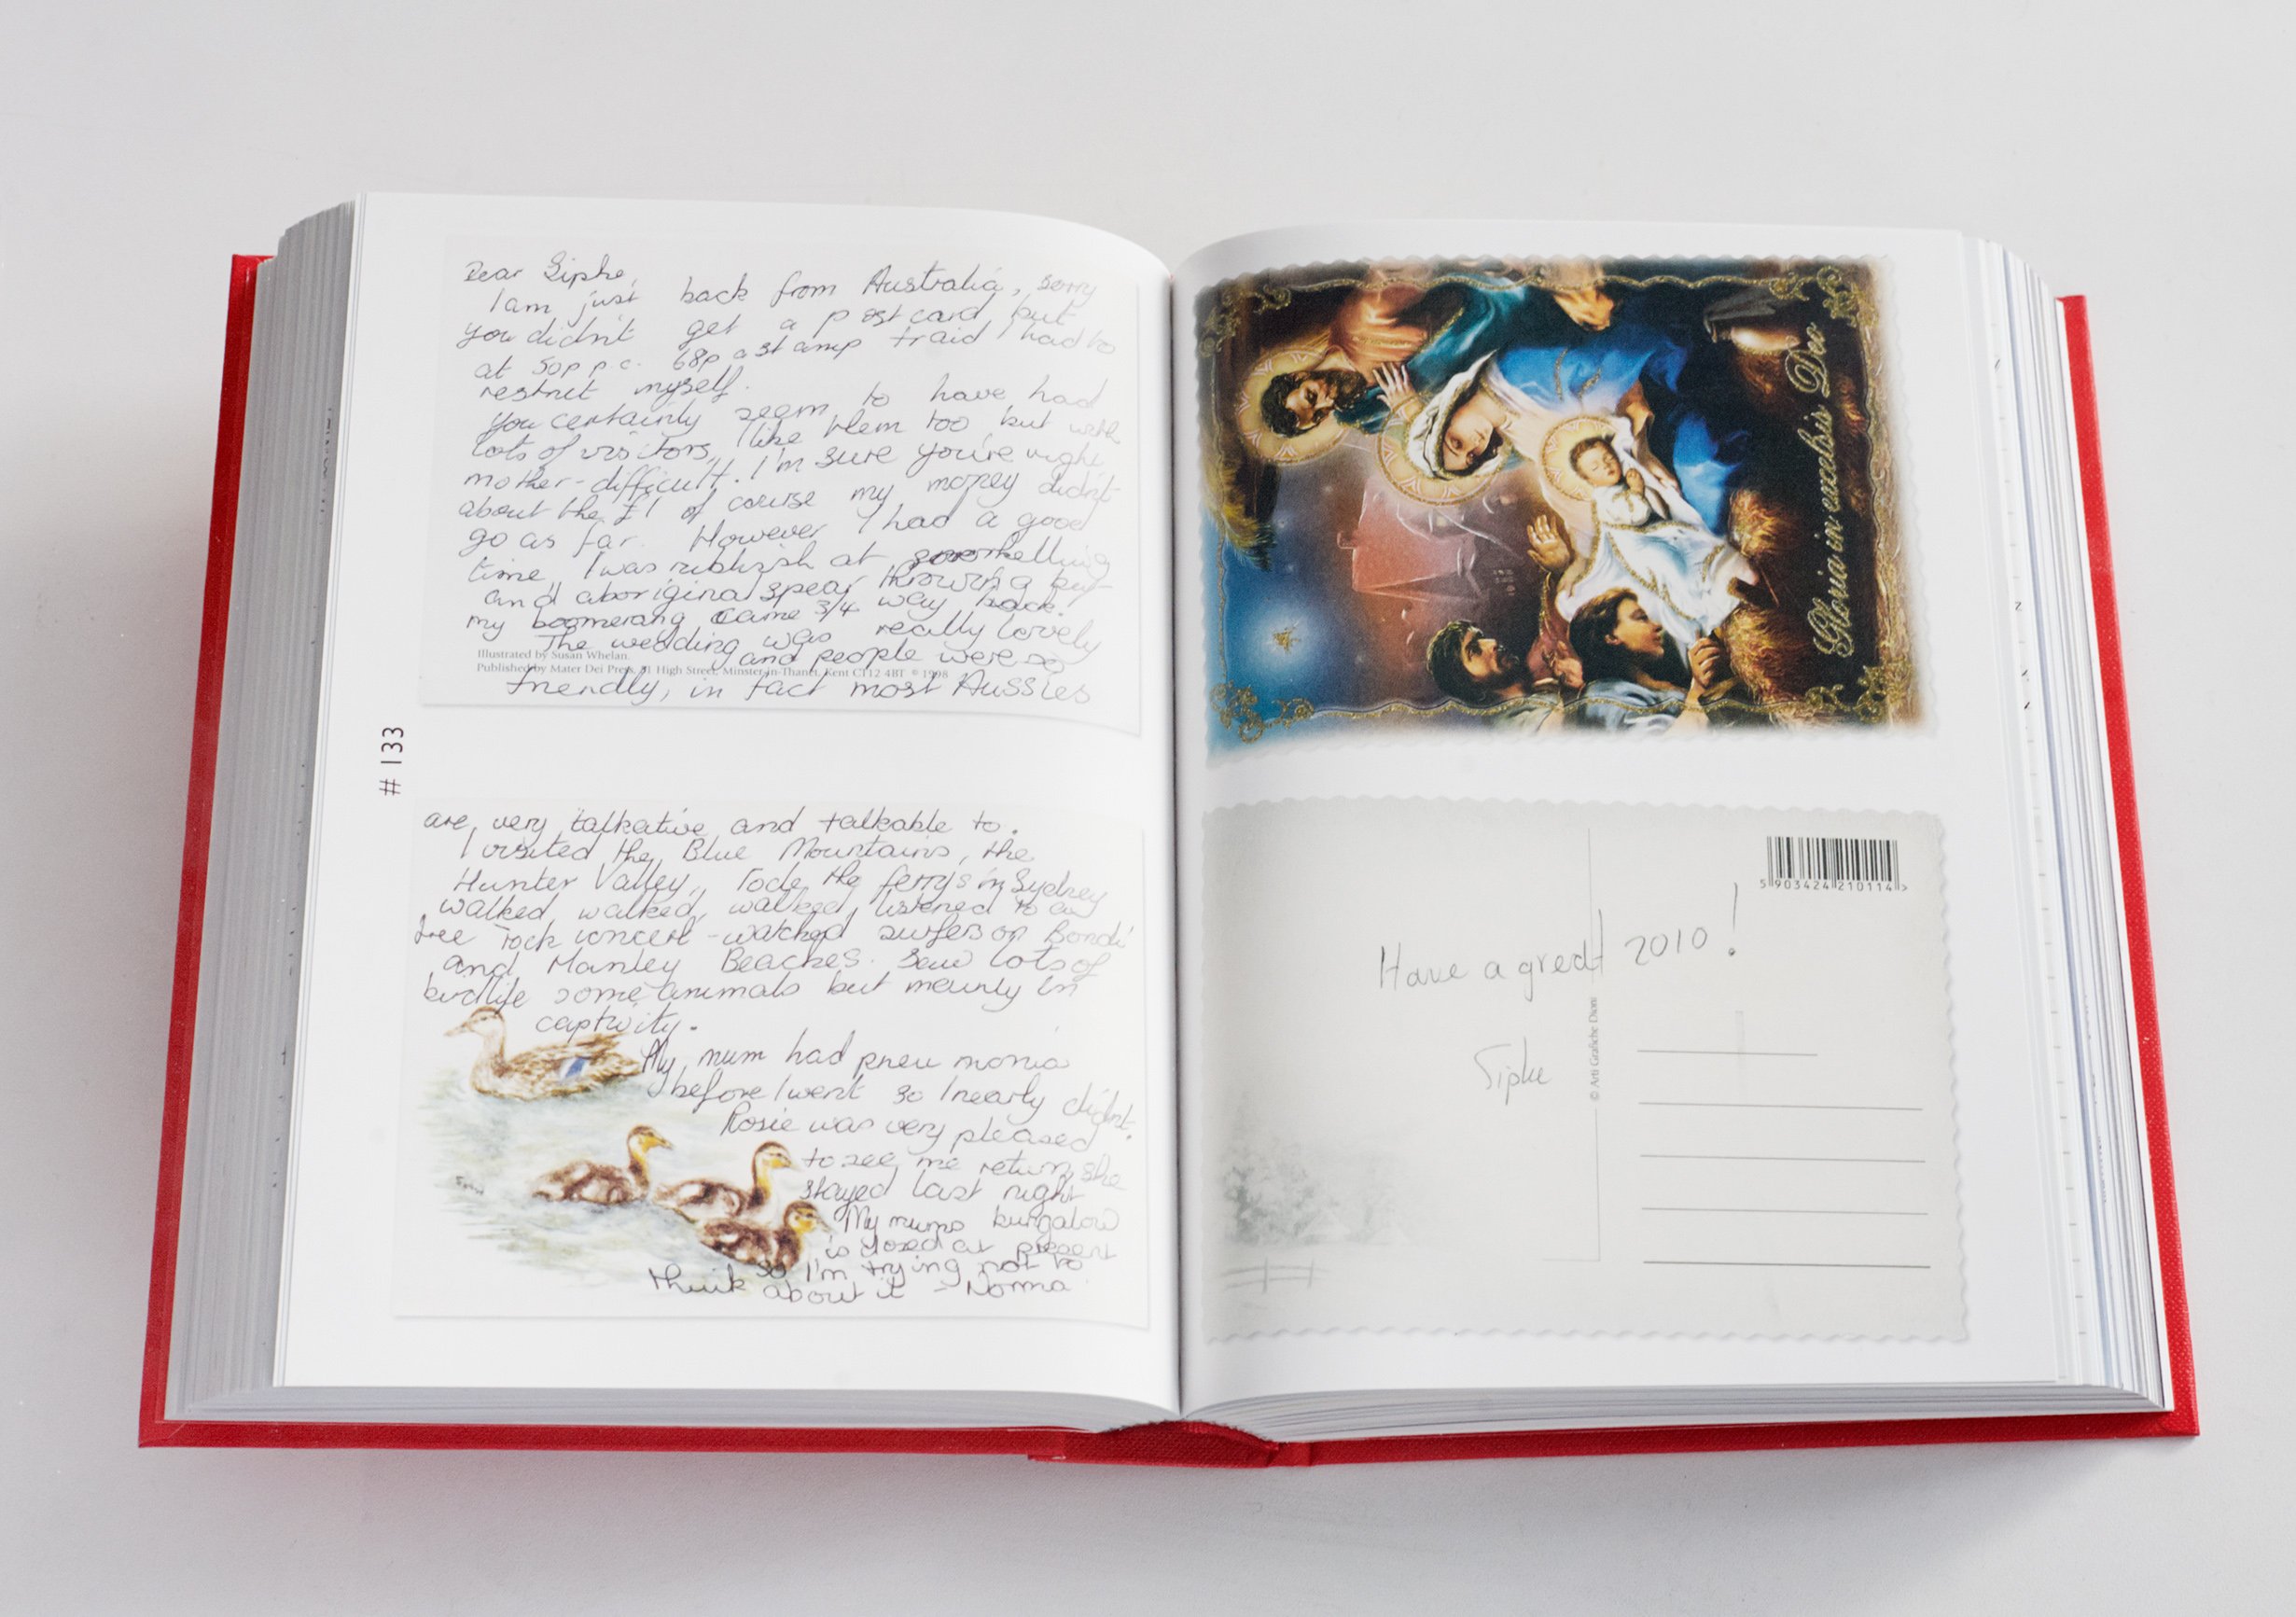 Dear Sipke,
I am just back from Australia, sorry
you didn't get a postcard but
at 50p p.c. 68p a stamp fraid I had to
restrict myself.
You certainly seem to have had
lots of visitors, I like them too but with
mother - difficult. I'm sure you're right
about the £1 of course my money didn't
go as far. However I had a good
time, I was rubbish at snorkelling
and aboriginal spear throwing but
my boomerang came 3/4 way back.
The wedding was really lovely
Illustrated by Susan Whelan.
and people were so
Published by Mater Dei Press, 51 High Street, Minster-in-Thanet, Kent CT12 4BT © 1998
friendly, in fact most Aussies
# 133
are very talkative and talkable to.
I visited the Blue Mountains, the
Hunter Valley, rode the ferrys in Sydney
walked, walked, walked, listened to a
free rock concert - watched surfers on Bondi
and Manley Beaches. Saw lots of
birdlife some animals but mainly in
captivity.
My mum had pneumonia
before I went so I nearly didn't.
Rosie was very pleased
to see me return, she
stayed last night
My mums bungalow
is closed at present
so I'm trying not to
think about it - Norma
Gloria in excelsis Deo
5 903424 210114 >
Have a great 2010!
Sipke
© Arti Grafiche Dioni